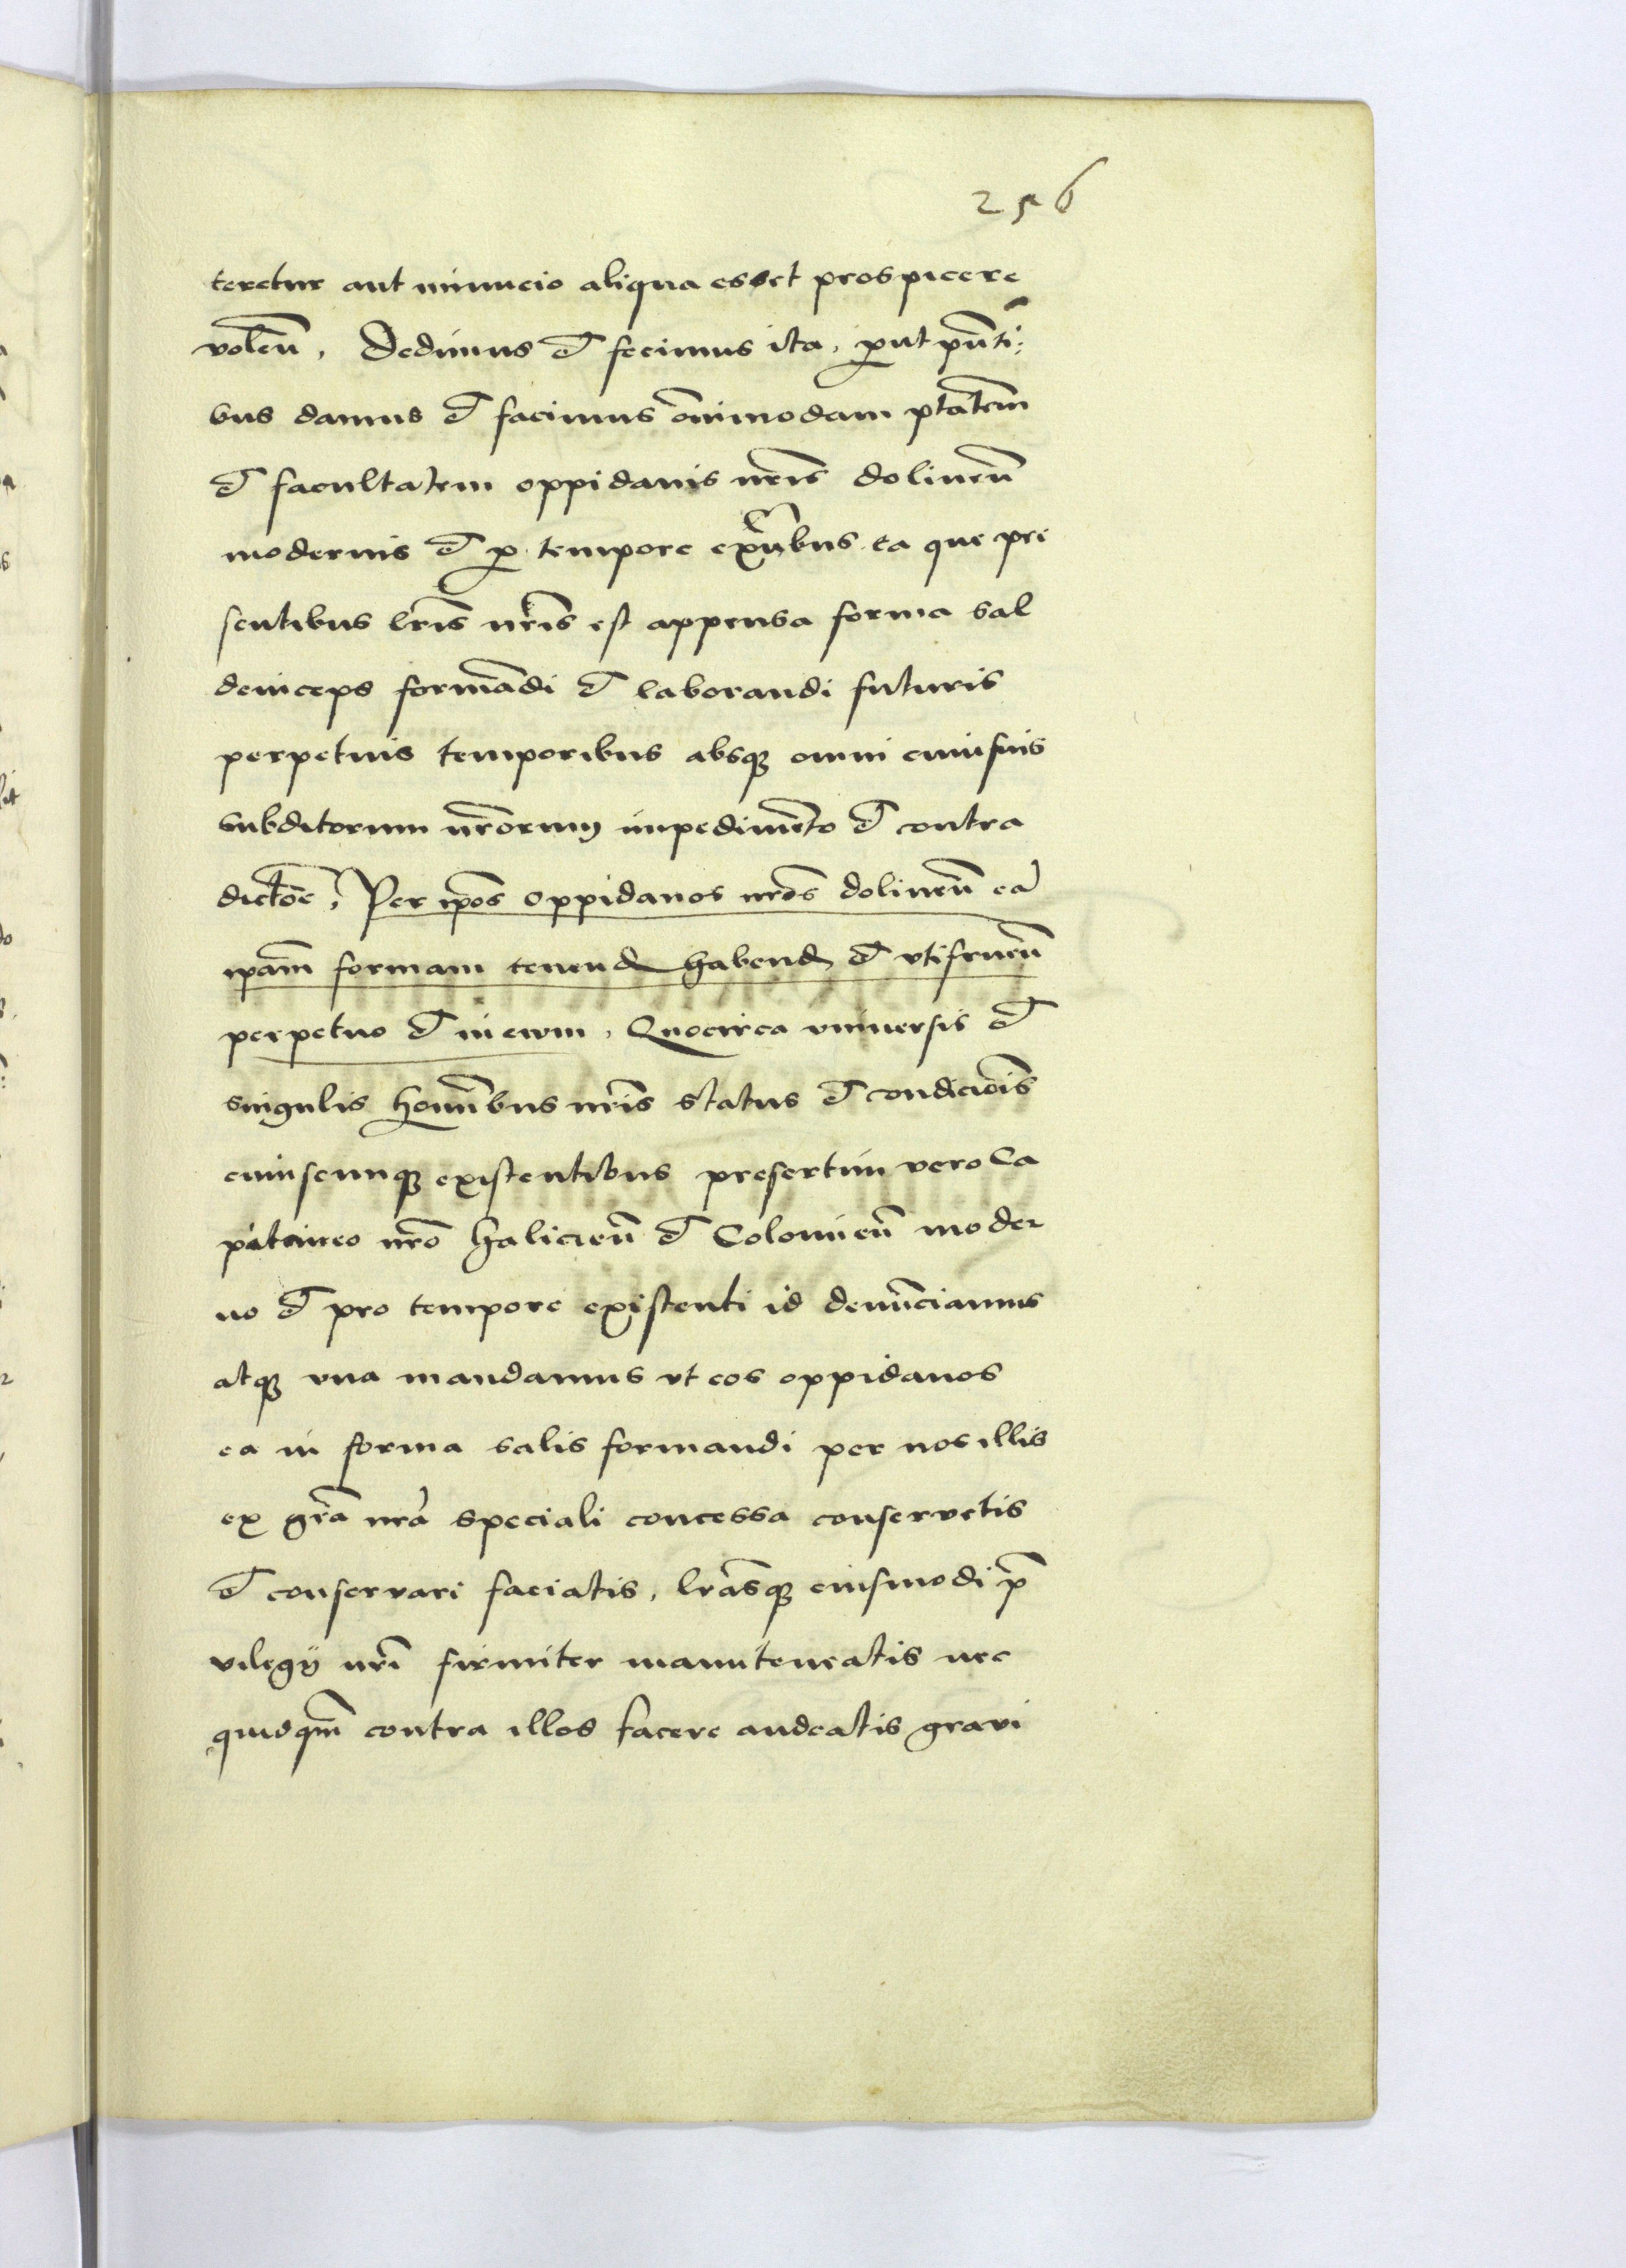 256
teretur aut minucio aliqua esset prospicere
volen̄, Dedimus et fecimus ita, ꝓut pn̄ti:
bus damus et facimus om̄imodam ptātem
et facultatem oppidanis nrīs dolinen̄
modernis et ꝓ tempore exn̄tibus ea que pre
sentibus lrīs nrīs est appensa forma sal
deinceps formādi et laborandi futuris
perpetuis temporibus absqꝫ omni cuiusuis
subditorum nrōrum impedimēto et contra
dictōe, Per ip̄os oppidanos nrōs dolinen̄ eā
ip̄am formam tenend habend et vtifruen̄
perpetuo et in ewm, Quocirca vniuersis et
singulis hom̄ibus nrīs status et condiciōis
cuiuscunqꝫ existentibus presertim vero Ca
pitaneo nrō halicien̄ et Colomien̄ moder
no et pro tempore existenti id denūciamus
atqꝫ vna mandamus vt eos oppidanos
ea in forma salis formandi per nos illis
ex grā nrā speciali concessa conseruetis
et conseruari faciatis, lrāsqꝫ eiusmodi p̄
vilegij nrī firmiter manuteneatis nec
quidqm̄ contra illos facere audeatis graui